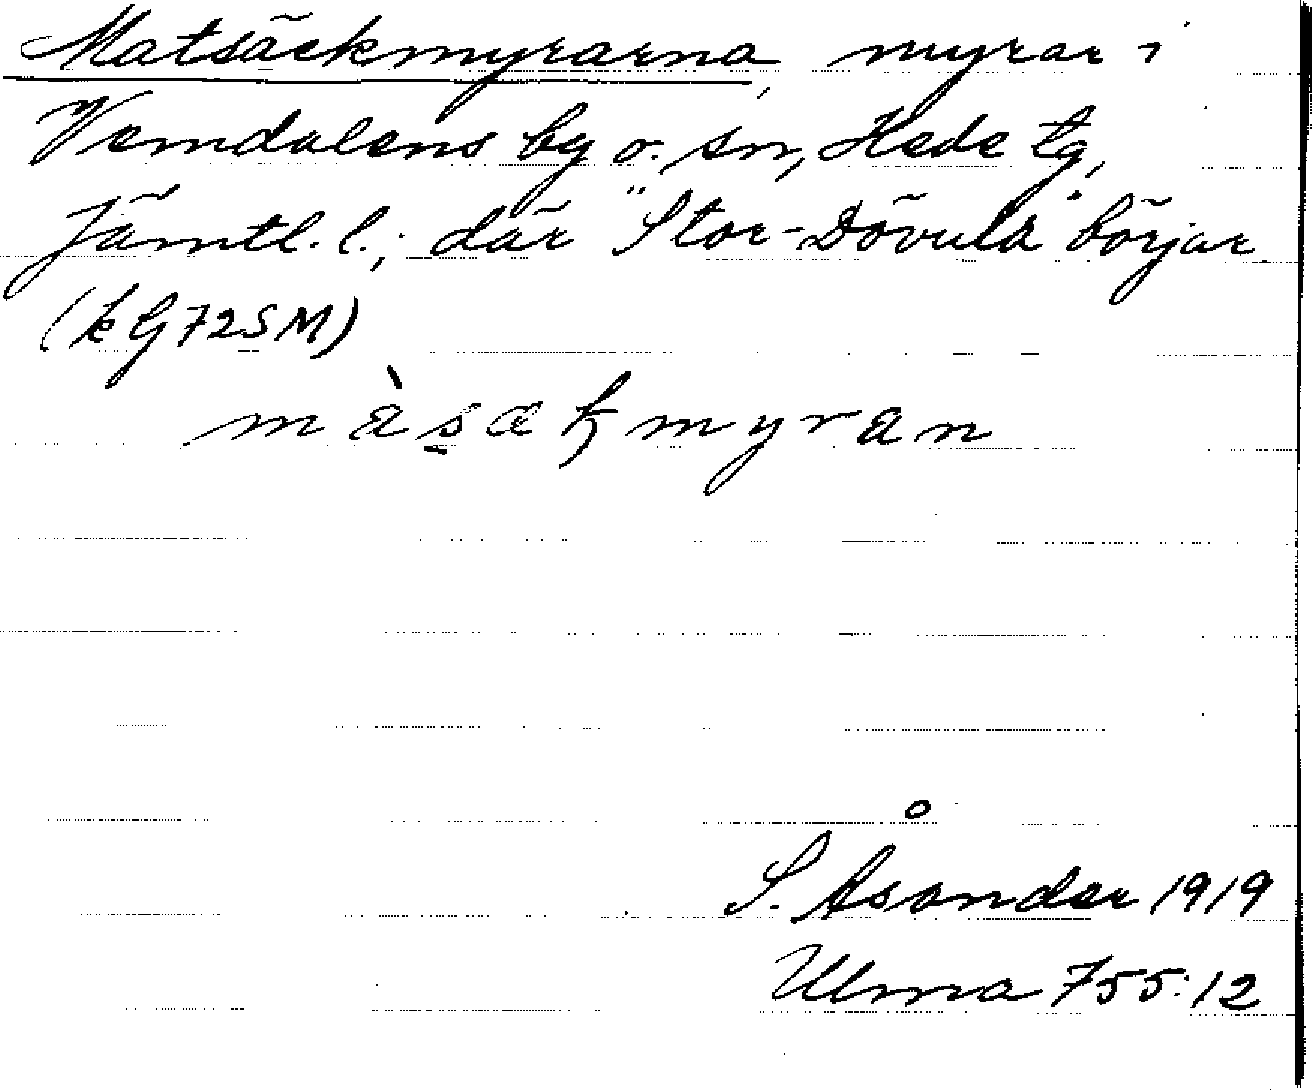 Matsäckmyrarna, myrar i
Vemdalens by o. sn, Hede tg,
Jämtl. l.; där "Stor-Dövulä" börjar
(kG72SM)
màsækmyran
S. Åsander 1919
Ulma 755:12